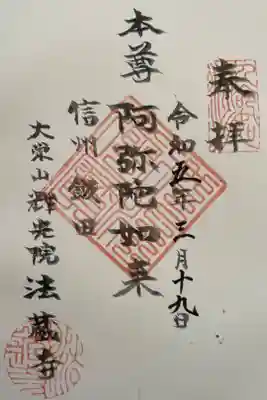 奉拝
令和五年三月十九日
本尊
阿弥陀如来
信州飯田
大栄山
院
法蔵寺